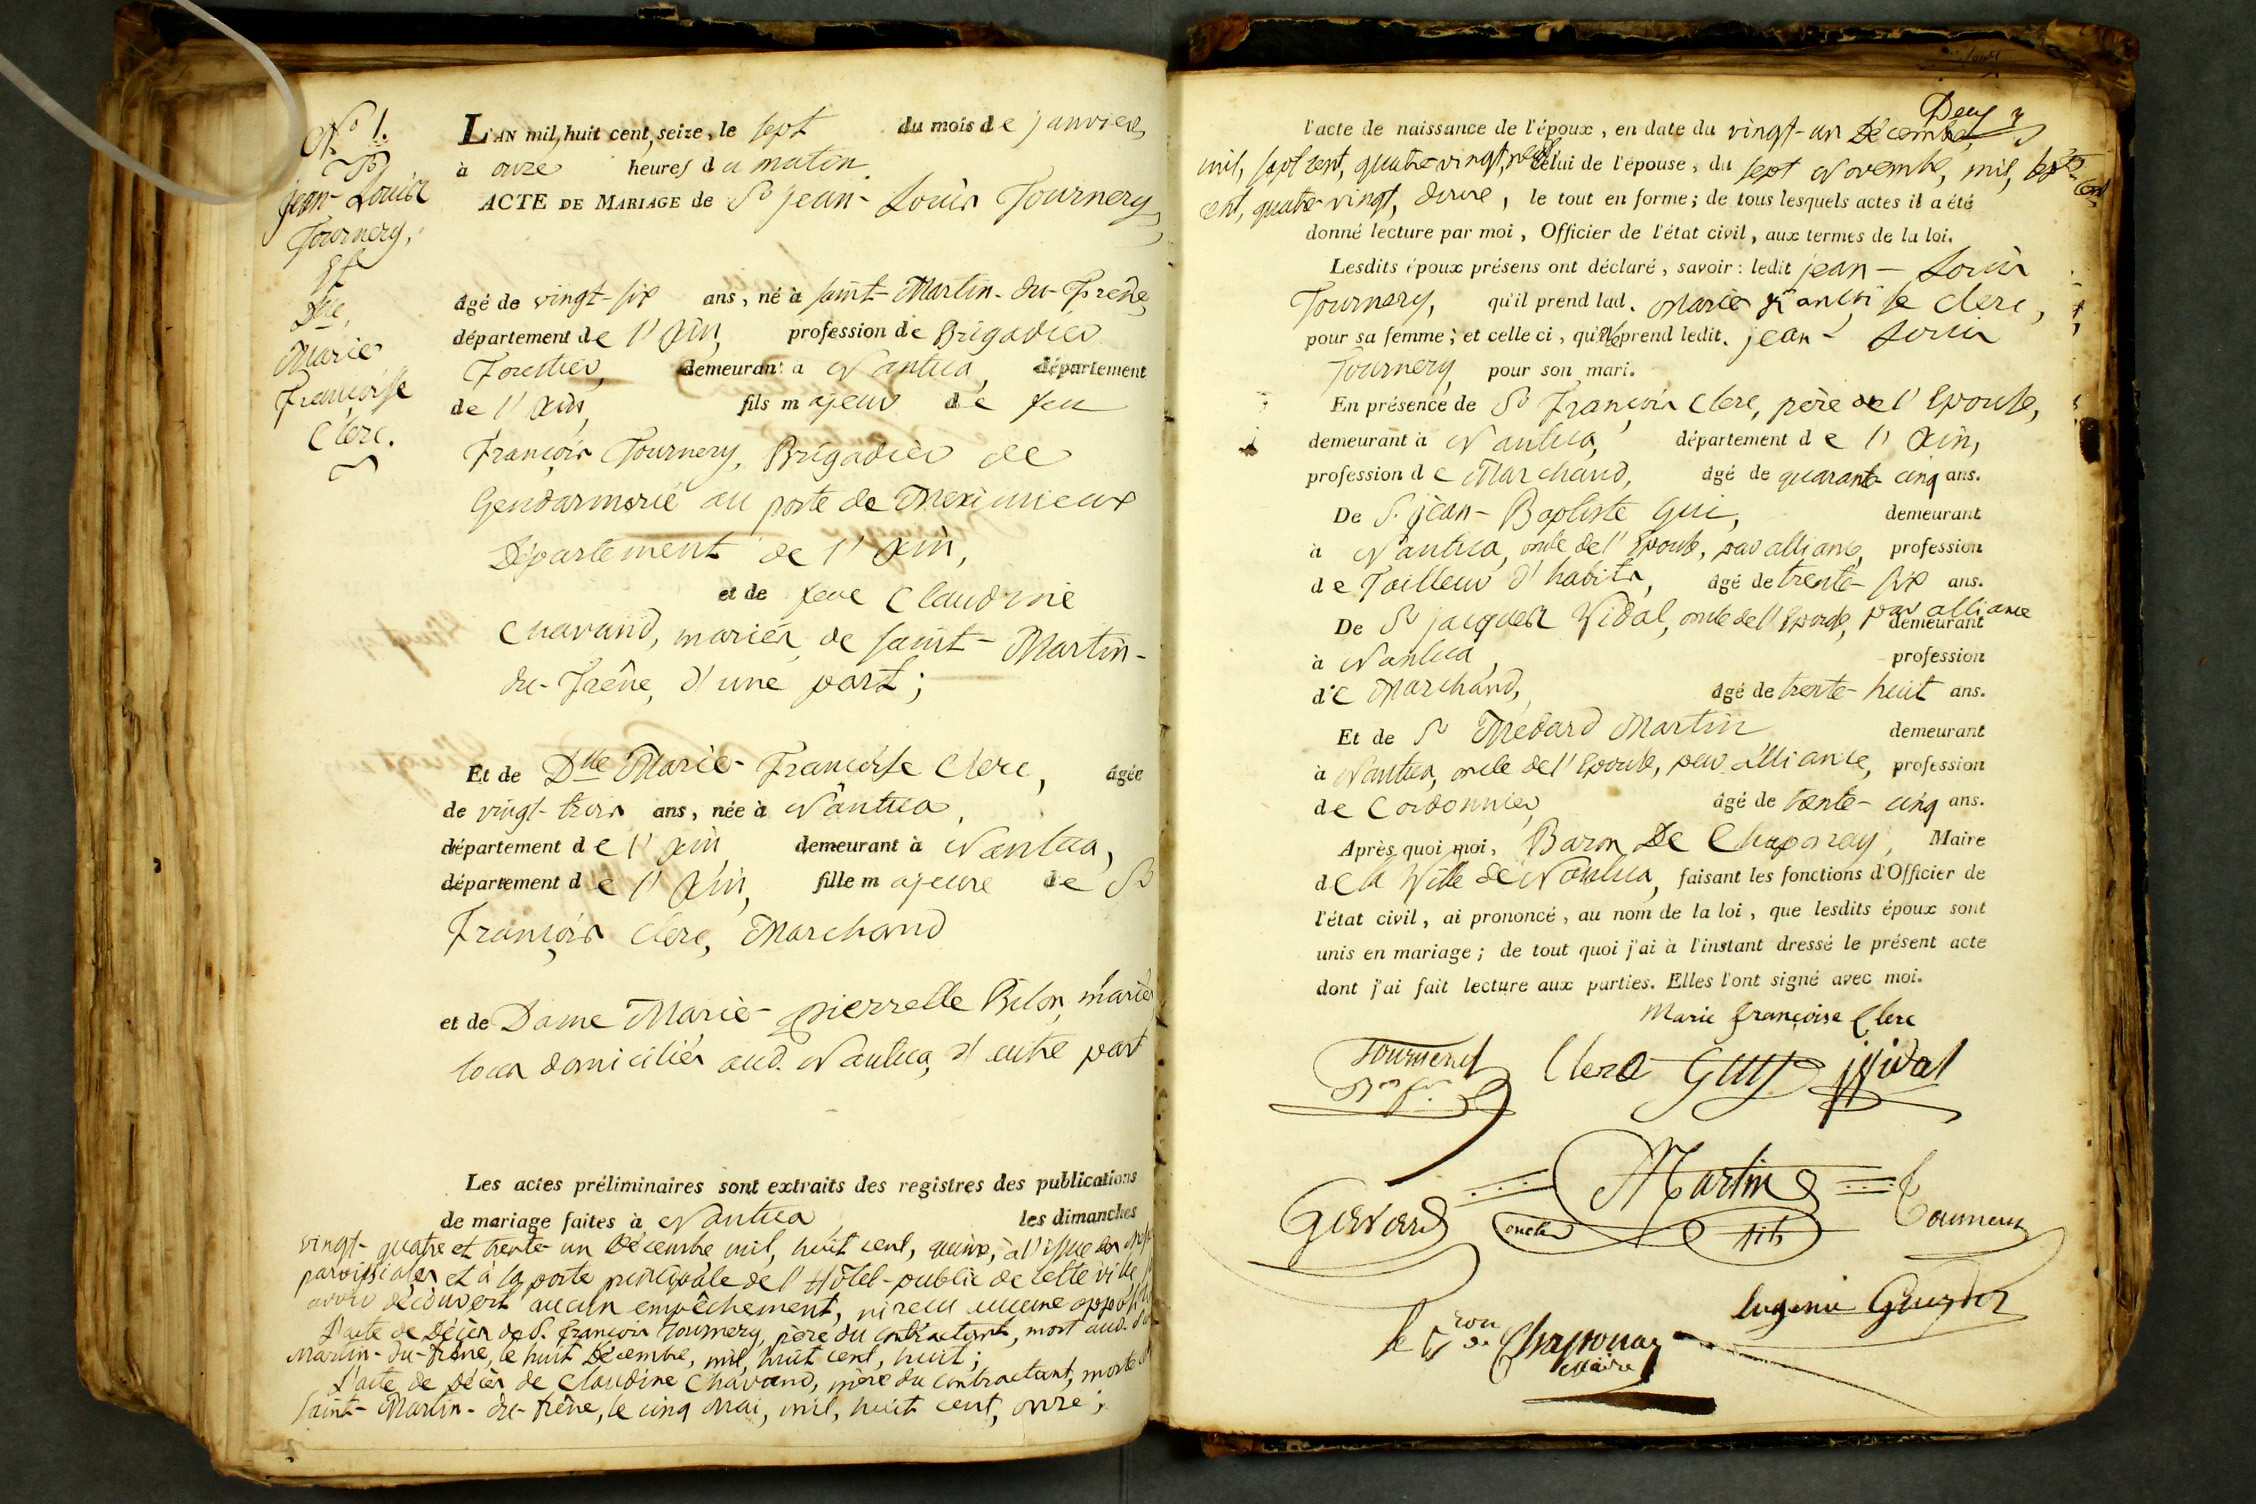 N.º 1.
Sr
jean-Louis
Tournery,
Et
Dlle
Marie
Françoise
Clerc.
L'AN mil, huit cent, seize, le sept du mois de janvier,
à onze heures du matin.
ACTE DE MARIAGE de Sr jean-Louis Tournery,
âgé de vingt-six ans, né à saint-Martin-du-Frêne,
département de l'Ain, profession de Brigadier
Forestier, demeurant à Nantua, département
de l'Ain, fils majeur de feu
François Tournery, Brigadier de
Gendarmerie au poste de Meximieux
Département de l'Ain,
et de feue Claudine
Chavand, mariés, de saint-Martin-
du-Frêne, d'une part;
Et de Dlle Marie-Françoise Clerc, âgée
de vingt-trois ans, née à Nantua,
département de l'Ain, demeurant à Nantua,
département de l'Ain, fille majeure de Sr
François Clerc, Marchand
et de Dame Marie-pierrette Bilon, mariés
tous domiciliés aud. Nantua, d'autre part
Les actes préliminaires sont extraits des registres des publications
de mariage faites à Nantua les dimanches
vingt-quatre et trente-un Décembre mil, huit cent, quinze, à l'issue des
paroissiales et à la porte principale de l'Hôtel-public de cette ville,
avoir découvert aucun empêchement, ni reçu aucune
L'acte de Décès de S. françois Tournery, père du contractant, mort aud.
Martin-du-frêne, le huit Décembre, mil, huit cent, huit;
L'acte de Décès de Claudine Chavand, mère du contractant, morte
saint-Martin-du-frêne, le cinq Mai, mil, huit cent, onze;
Deux
l'acte de naissance de l'époux, en date du vingt-un Décembre,
mil, sept cent, quatre vingt, neuf, celui de l'épouse, du sept Novembre, mil, sept
cent, quatre-vingt, douze, le tout en forme; de tous lesquels actes il a été
donné lecture par moi, Officier de l'état civil, aux termes de la loi.
Lesdits époux présens ont déclaré, savoir: ledit jean-Louis
Tournery, qu'il prend lad. Marie françoise Clerc,
pour sa femme; et celle ci, qu'elle prend ledit. jean-Louis
Tournery pour son mari.
En présence de Sr François Clerc, père de l'Epouse,
demeurant à Nantua, département de l'Ain,
profession de Marchand, âgé de quarante-cinq ans.
De S. jean-Baptiste Gui, demeurant
à Nantua, oncle de l'Epouse, par alliance, profession
de Tailleur d'habits, âgé de trente-six ans.
De Sr jacques Vidal, oncle de l'Epouse, par alliance demeurant
à Nantua, profession
de Marchand, âgé de trente-huit ans.
Et de Sr Médard Martin demeurant
à Nantua, oncle de l'Epouse, par alliance, profession
de Cordonnier, âgé de trente-cinq ans.
Après quoi moi, Baron De Chaponay, Maire
de la Ville de Nantua, faisant les fonctions d'Officier de
l'état civil, ai prononcé, au nom de la loi, que lesdits époux sont
unis en mariage; de tout quoi j'ai à l'instant dressé le présent acte
dont j'ai fait lecture aux parties. Elles l'ont signé avec moi.
Marie françoise Clerc
Clerc Guy jVidal
Martin
oncle
Eugenie
le Bron de Chaponay
Maire